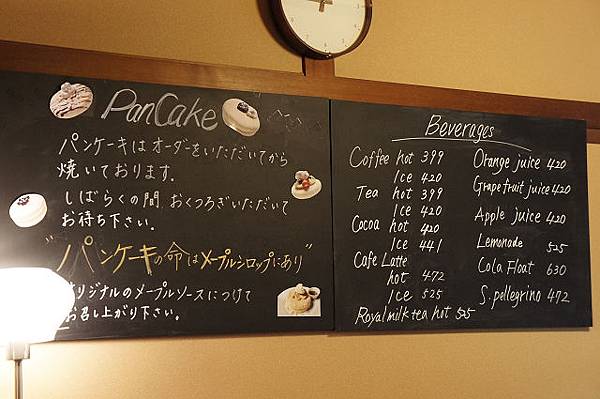 PanCake
パンケーキはオーダーをいただいてから
焼いております。
しばらくの間、おくつろぎいただいて
お待ち下さい。
"パンケーキの命はメープルシロップにあり"
リジナルのメープルソースにつけて
お召し上がり下さい。
Beverages
Coffee hot 399
Ice 420
Tea hot 399
Ice 420
Cocoa hot 420
Ice 441
Cafe Latte
hot 472
Ice 525
Royal milk tea hot 525
Orange juice 420
Grapefruit juice 420
Apple juice 420
Lemonade 525
Cola Float 630
S. pellegrino 472